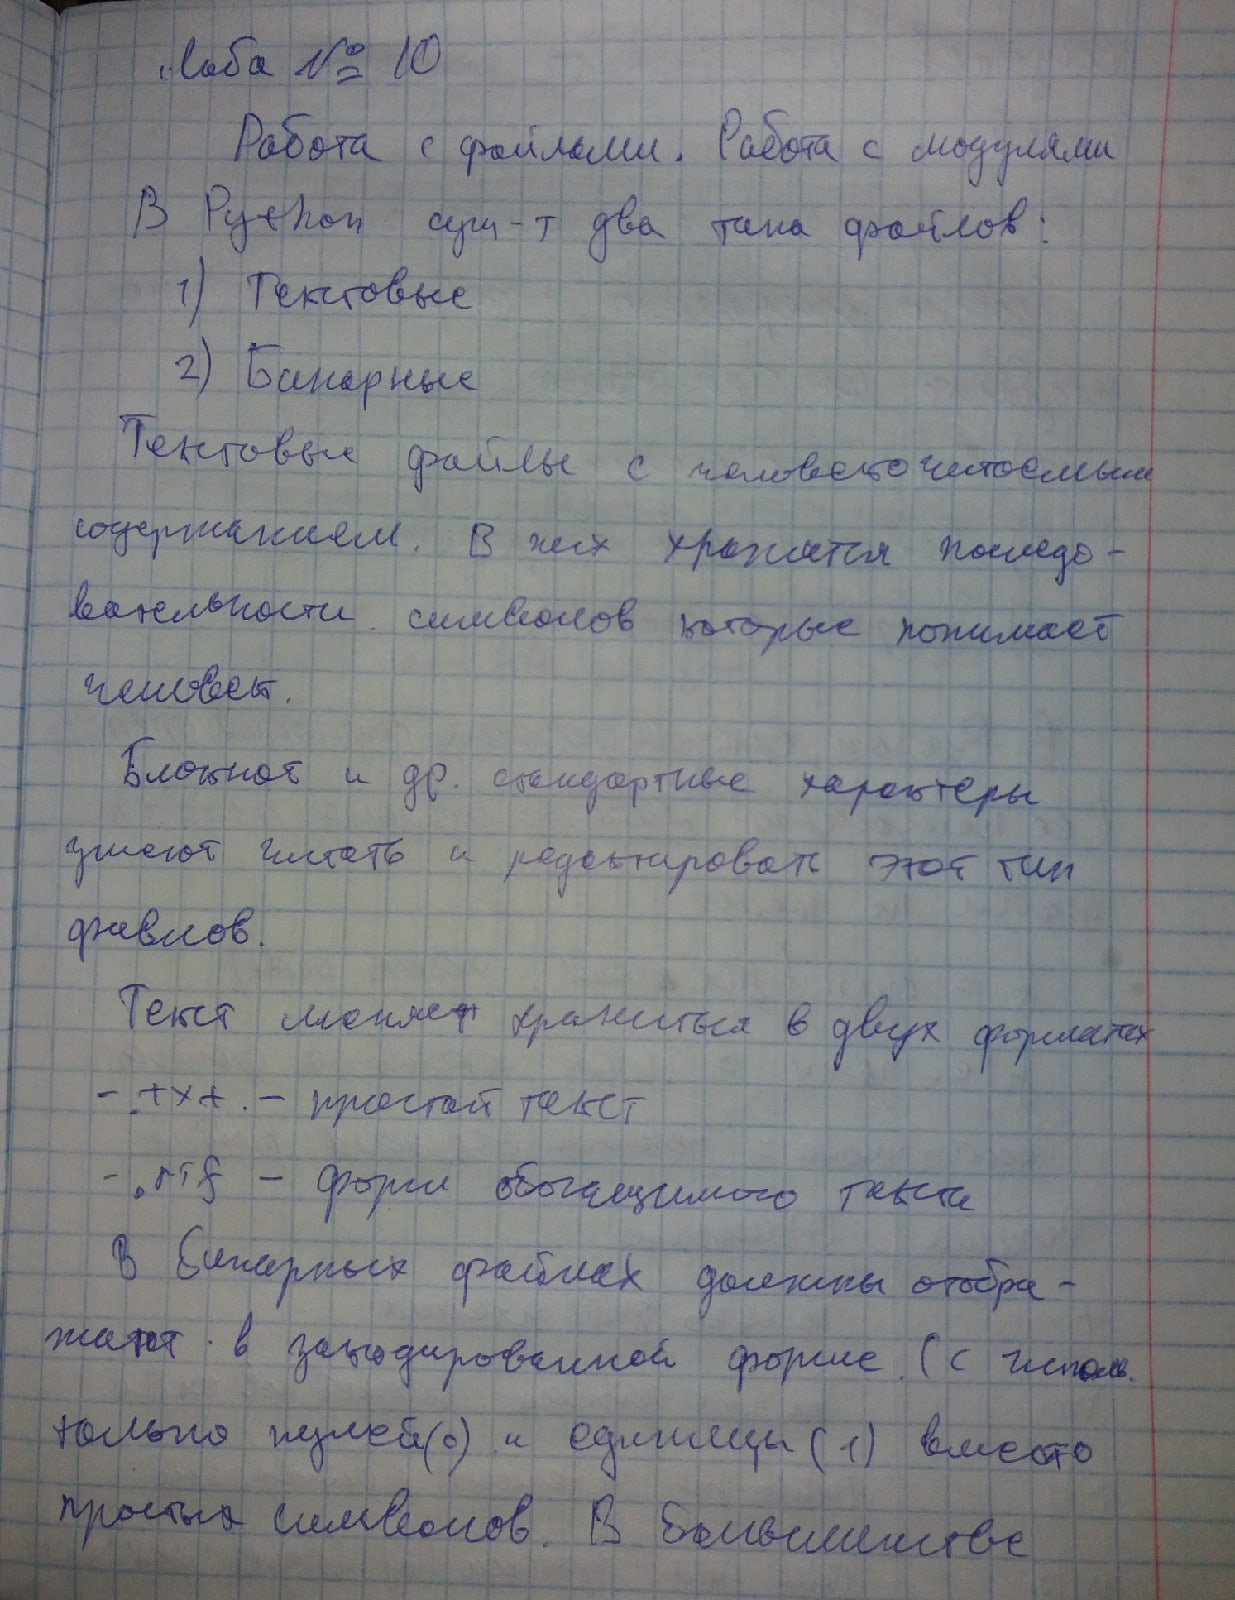 Лаба № 10
Работа с файлами. Работа с модулями
В Python сущ-т два типа файлов:
1) Текстовые
2) Бинарные
Текстовые файлы с человекочитаемым
содержанием. В них хранятся последо-
вательности символов которые понимает
человек.
Блокнот и др. стандартные характеры
умеют читать и редактировать этот тип
файлов.
Текст может храниться в двух форматах
- .txt. - простой текст
- .rtf - форм обогащимого текста
В бинарных файлах должны отобра-
жатся в закодированной форме (с использ.
только нулей(0) и единицы (1) вместо
простых символов. В большинстве